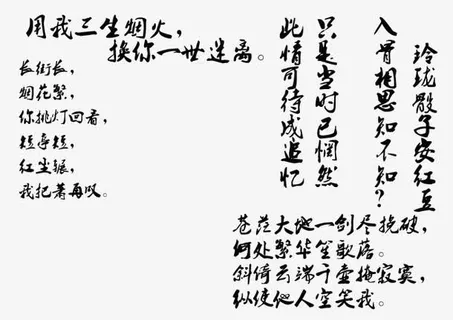 用我三生烟火，
换你一世迷离。
长街长，
烟花繁，
你挑灯回看，
短亭短，
红尘辗，
我把萧再叹。
玲珑骰子安红豆
入骨相思知不知？
只是当时已惘然
此情可待成追忆
苍茫大地一剑尽挽破，
何处繁华笙歌落。
斜倚云端千壶掩寂寞，
纵使他人空笑我。